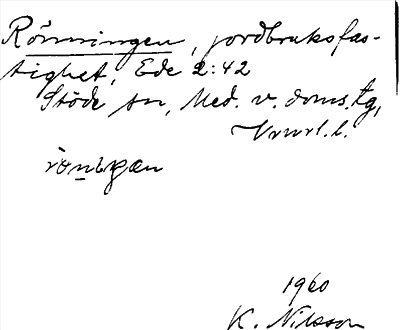 Rönningen, jordbruksfas-
tighet, Ede 2:42
Stöde sn, Med. v. doms. tg,
Vnrl. l.
1960
K. Nilsson